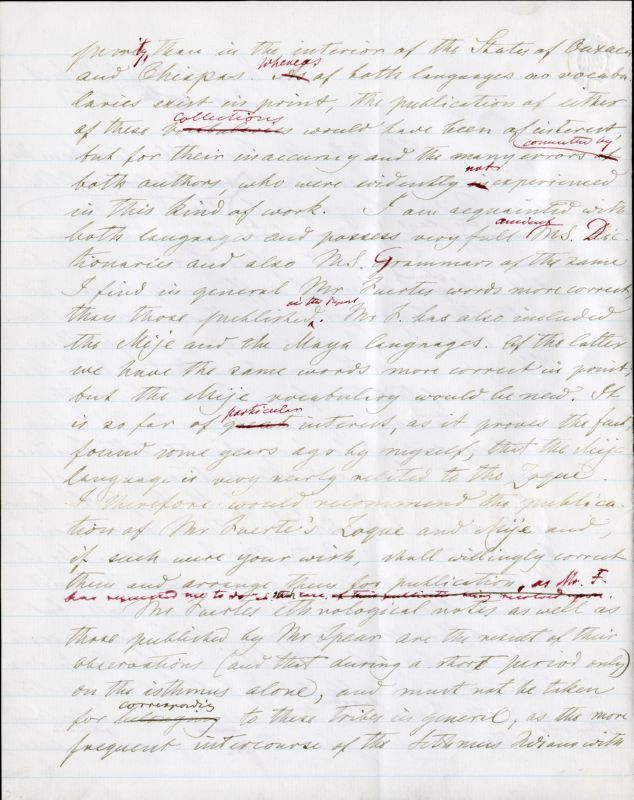 purity, than in the interior of the States of Oaxaca
and Chiapas. Whereas As of both languages no vocabu-
laries exist in print, the publication of either
of these collections vocabularies would have been of interest
but for their inaccuracy and the many errors committed by of
both authors, who were evidently not in experienced
in this kind of work. I am acquainted with
both languages and possess very full ancient MS. Dic-
tionaries and also MS. Grammars of the same
I find in general Mr Fuertes words more correct,
than those published in the report. Mr F. has also included
the Mije and the Maya languages. Of the latter
we have the same words more correct in print
but the Mije vocabulary would be new. It
is so far of particular great interest, as it proves the fact,
found some years ago by myself, that the Mije
language is very nearly related to the Zoque.
I therefore would recommend the publica-
tion of Mr Fuerte's Zoque and Mije and,
if such were your wish, shall willingly correct
them and arrange them for publication, as Mr. F.
has requested me to do in that case
Mr Fuertes ethnological notes as well as
those published by Mr Spear are the result of their
observations (and that during a short period only)
on the isthmus alone, and must not be taken
for corresponding belonging to these tribes in general, as the more
frequent intercourse of the Isthmus Indians with